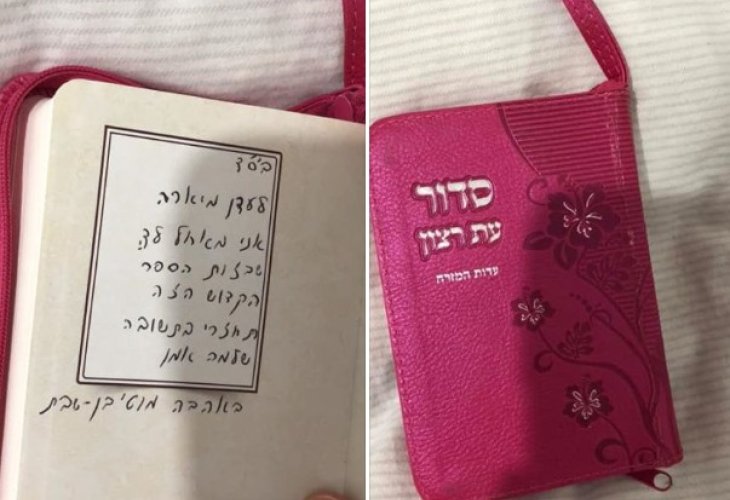 ב"סד
לעדן מיארה
אני מאחל לך
שבזות הספר
הקדוש הזה
תחזרי בתשובה
שלמה אמן
באהבה מוטי בן-שבת
סדור
עת רצון
עדות המזרח